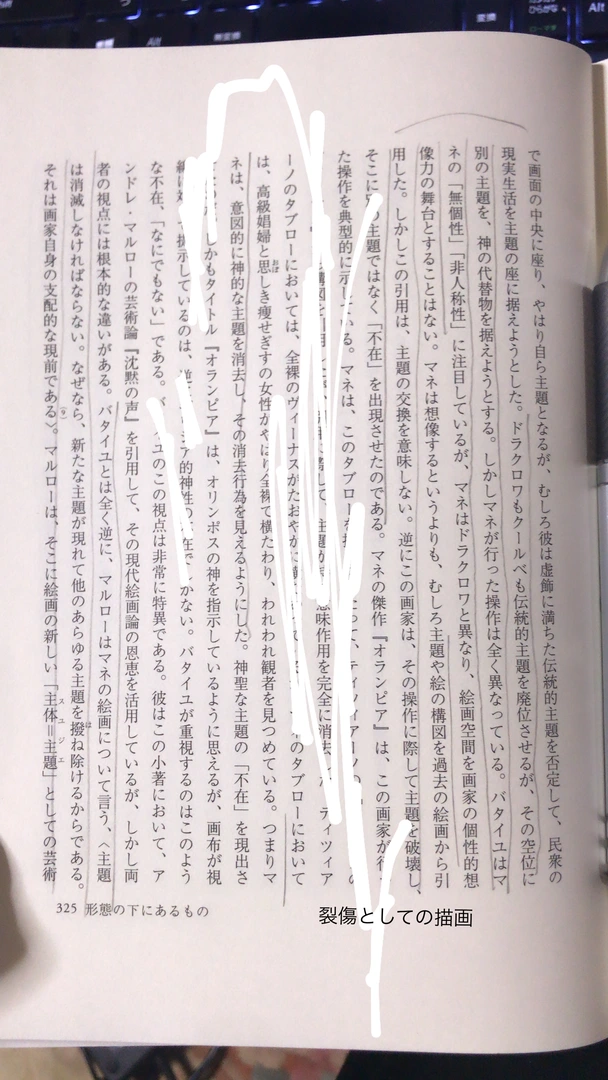 で画面の中央に座り、やはり自ら主題となるが、むしろ彼は虚飾に満ちた伝統的主題を否定して、民衆の
現実生活を主題の座に据えようとした。ドラクロワもクールベも伝統的主題を廃位させるが、その空位に
別の主題を、神の代替物を据えようとする。しかしマネが行った操作は全く異なっている。バタイユはマ
ネの「無個性」「非人称性」に注目しているが、マネはドラクロワと異なり、絵画空間を画家の個性的想
像力の舞台とすることはない。マネは想像するというよりも、むしろ主題や絵の構図を過去の絵画から引
用した。しかしこの引用は、主題の交換を意味しない。逆にこの画家は、その操作に際して主題を破壊し、
そこに の主題ではなく「不在」を出現させたのである。マネの傑作『オランピア』は、この画家が行
た操作を典型的に示している。マネは、このタブローを って、ティツィアーノの
構図を引用したが、 に際して、主題が 意味作用を完全に消去 ティツィア
ーノのタブローにおいては、全裸のヴィーナスがたおやかに のタブローにおいて
は、高級娼婦と思しき痩せぎすの女性がやはり全裸で横たわり、われわれ観者を見つめている。つまりマ
ネは、意図的に神的な主題を消去し、その消去行為を見えるようにした。神聖な主題の「不在」を現出さ
しかもタイトル『オランピア』は、オリンポスの神を指示しているように思えるが、画布が視
提示しているのは、 的神性の 在で かない。バタイユが重視するのはこのよう
な不在、「なにでもない」である。バ ユのこの視点は非常に特異である。彼はこの小著において、ア
ンドレ・マルローの芸術論『沈黙の声』を引用して、その現代絵画論の恩恵を活用しているが、しかし両
者の視点には根本的な違いがある。バタイユとは全く逆に、マルローはマネの絵画について言う、〈主題
は消滅しなければならない。なぜなら、新たな主題が現れて他のあらゆる主題を撥ね除けるからである。
それは画家自身の支配的な現前である〉(9)。マルローは、そこに絵画の新しい「主体=主題」としての芸術
325 形態の下にあるもの
裂傷としての描画